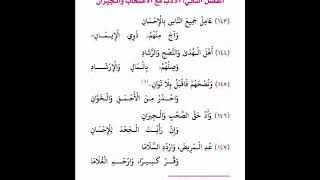 الفصل الثاني: الأدب مع الأصحاب والجيران
(١٤٣) عَامِلْ جَمِيعَ النَّاسِ بِالْإِحْسَانِ
وَآخِ مِنْهُمْ: ذَوِي الْإِيمَانِ،
(١٤٤) أَهْلَ الْهُدَىٰ وَالنُّصْحِ وَالرَّشَادِ
وَصِلْهُمُ: بِالْمَالِ وَالْإِرْشَادِ
(١٤٥) وَنُصْحَهُمْ فَاقْبَلْ بِلَا تَوَانِ
وَاحْذَرْ مِنَ الْأَحْمَقِ وَالْخَوَّانِ
(١٤٦) وَأَدِّ حَقَّ الصَّحْبِ وَالْجِيرَانِ
وَإِنْ رَأَيْتَ الْجَحْدَ لِلْإِحْسَانِ
(١٤٧) عُدِ الْمَرِيضَ، وَارْدُدِ السَّلَامَا
وَقِّرْ كَبِيرًا، وَارْحَمِ الْغُلَامَا